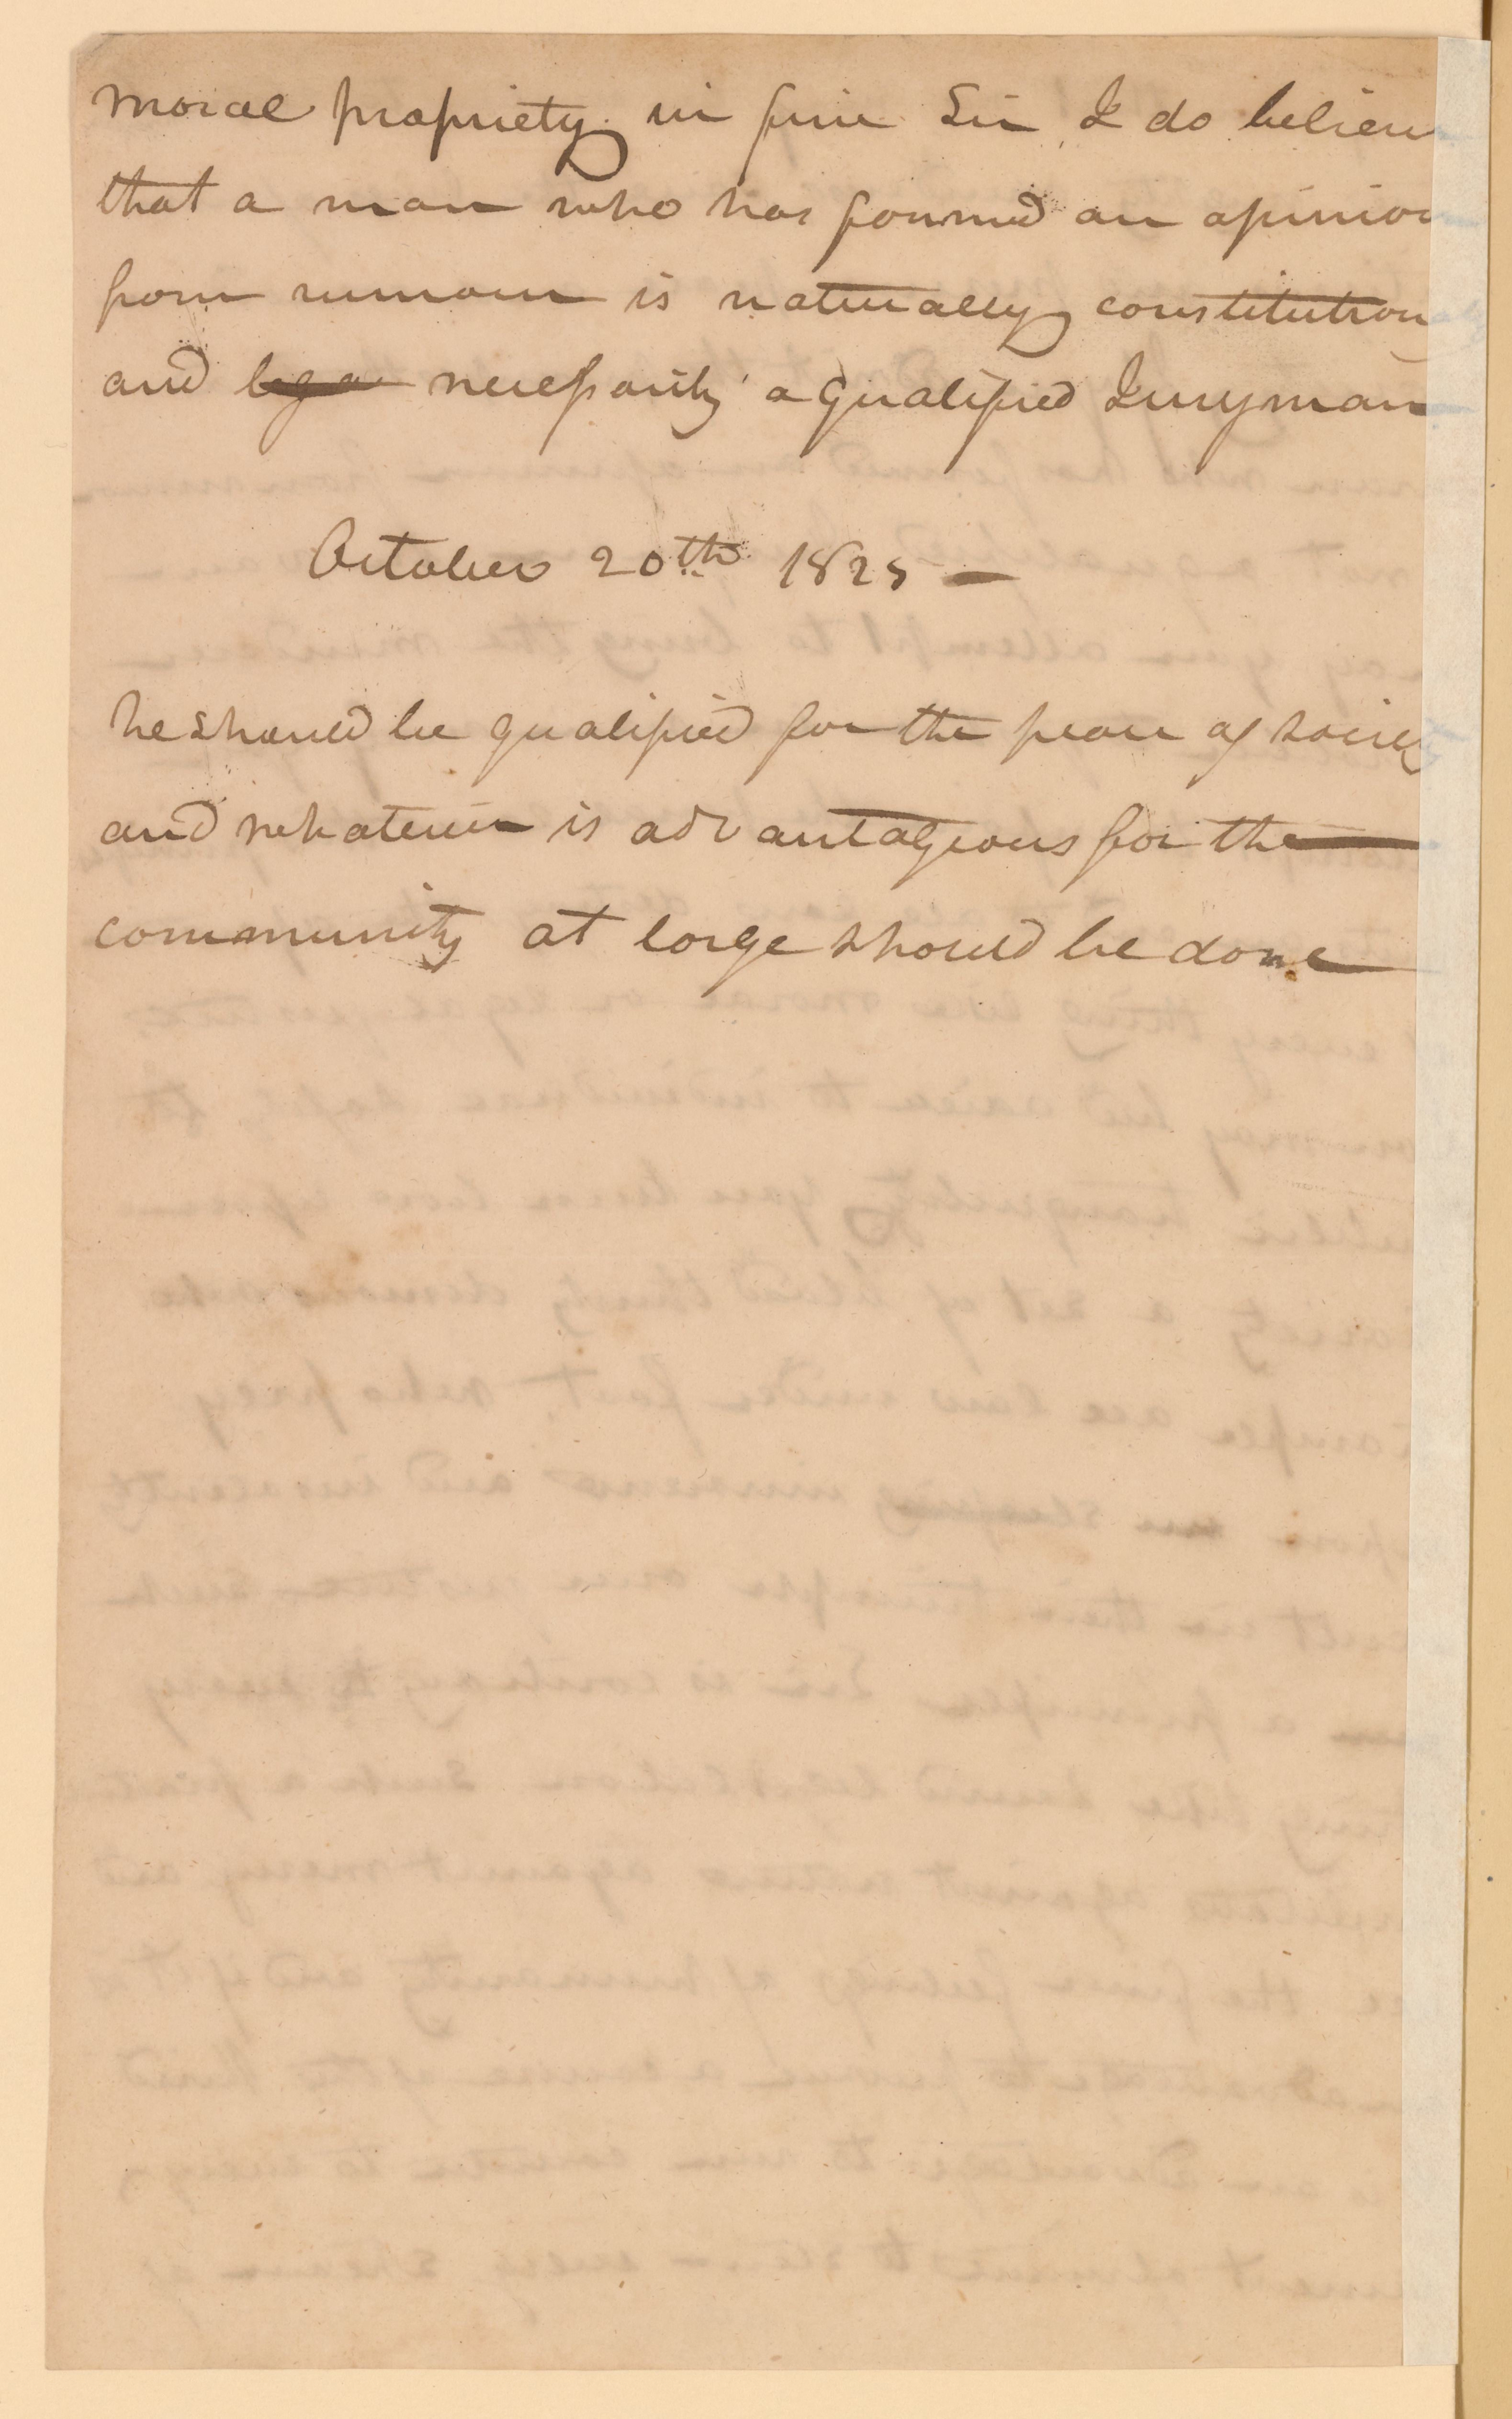 moral propriety in fine Sir, I do believe
that a man who has formed an opinion
from rumour is naturally constitution
and legal necessarily a qualified Juryman
October 20th 1825 —
he should be qualified for the peace of society
and whatever is advantageous for the
community at large should be done